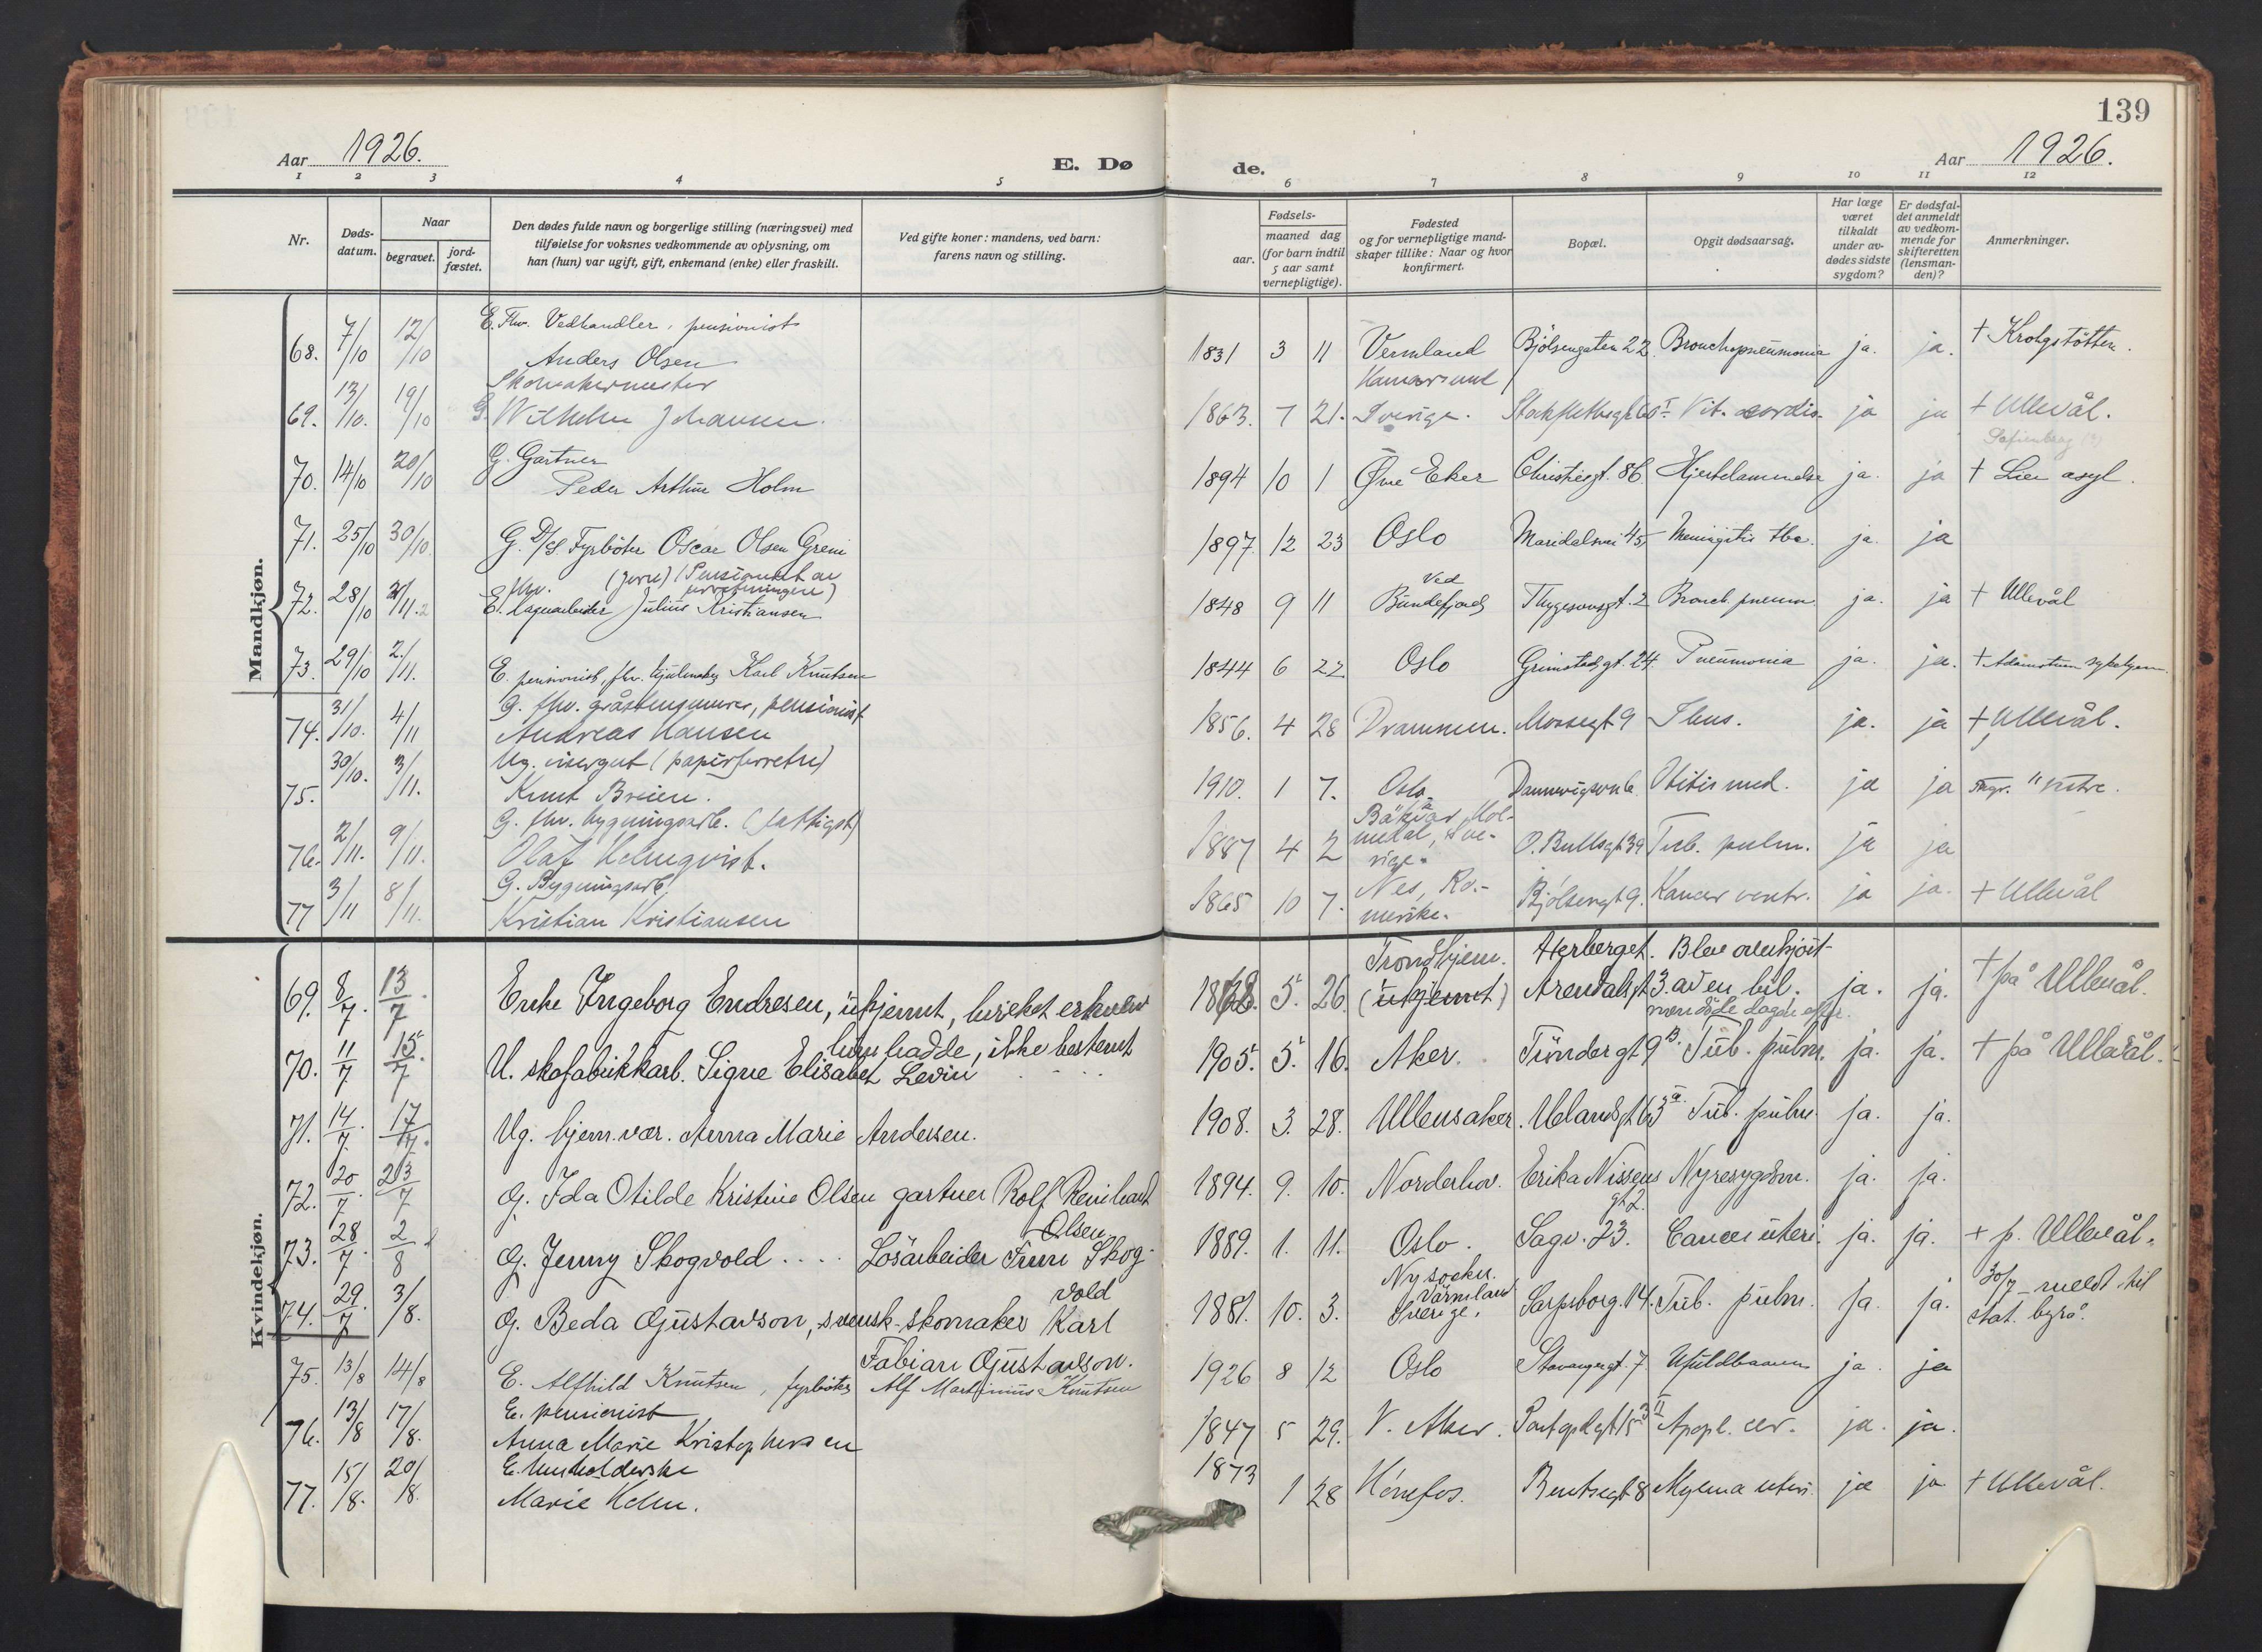 139
Aar 1926.
E. Dø
de.
Aar 1926.
1 2 3 4 5 6 7 8 9 10 11 12
Nr.
Døds-
datum.
Naar
begravet.
jord-
fæstet.
Den dødes fulde navn og borgerlige stilling (næringsvei) med
tilføielse for voksnes vedkommende av oplysning, om
han (hun) var ugift, gift, enkemand (enke) eller fraskilt.
Ved gifte koner: mandens, ved barn:
farens navn og stilling.
Fødsels-
aar.
maaned dag
(for barn indtil
5 aar samt
vernepligtige).
Fødested
og for vernepligtige mand-
skaper tillike: Naar og hvor
konfirmert.
Bopæl.
Opgit dødsaarsag.
Har læge
været
tilkaldt
under av-
dødes sidste
sygdom?
Er dødsfal-
det anmeldt
av vedkom-
mende for
skifteretten
(lensman-
den)?
Anmerkninger.
Mandkjøn.
68. 7/10 12/10 E. Fhv. Vedhandler, pensionist
Anders Olsen 1831 3 11 Vermland Bjølsengaten 22 Bronchopneumonia ja. ja. † Krohgstøtten.
69. 13/10. 19/10 Skomakermester
G. Wilhelm Johansen. 1863. 7 21. Sverige. Vit. cordis ja ja + Ullevål.
70. 14/10 20/10 G. Gartner
Peder Arthur Holm 1894 10 1 Øvre Eker Christiesgt. 86 Hjertelammelse ja. ja † Lier asyl.
71. 25/10 30/10 G. D/S Fyrbøter Oscar Olsen Greni 1897. 12 23 Oslo Maridalsvei 45 Meningitis tbc. ja. ja
72. 28/10 E. fhv. Julius Kristiansen 1848 9 11 Ved
Bundefjord Thygesonsgt. 2 Bronch. pneum. ja. ja + Ullevål
73. 29/10 2/11. E. pensionist, fhv. Karl Knutsen 1844 6 22 Oslo Grimstadgt. 24. Pneumonia ja. ja.
74. 31/10. 4/11 G. fhv. gråstensmurer, pensionist
Andreas Hansen 1856. 4 28 Drammen. Mossegt 9 ja. ja + Ullevål.
75. 30/10. 3/11. Ug. visergut (papirforretn)
Knut Breien. 1910. 1 7. Oslo. Otitis med. ja ja
76. 2/11. 9/11. G. fhv. bygningsarb. (fattigst)
Olaf Holmqvist. 1887 4 2 O. Bullsgt 39 Tub. pulm. ja ja
77 3/11 8/11. G. Bygningsarb.
Kristian Kristiansen 1865 10 7. Nes, Ro-
merike. Bjølsengt 9. Kancer ventr. ja ja. + Ullevål
Kvindekjøn.
69. 8/7. 13/7. Enke Ingeborg Endresen, ukjennt, hvilket erhverv
hun hadde, ikke bestemt 5. 26 Trondhjem.
(ukjennt) Herberget.
Arendalsgt 3. Blev overkjørt
av en bil. ja. ja. + på Ullevål.
70. 11/7 15/7 U. skofabrikkarb. Signe Elisabet Levin 1905. 5. 16. Aker. Tröndergt 9 B. Tub. pulm. ja. ja. + på Ullevål.
71. 14/7. 17/7. Ug. hjem.vær. Anna Marie Andersen. 1908. 3. 28. Ullensaker. Uelandsgt 63 a. Tub. pulm. ja. ja.
72. 20/7. 23/7 G. Ida Otilde Kristine Olsen gartner Rolf Reinhart
Olsen 1894. 9. 10. Norderhov. Erika Nissens
gt 2. Nyresygdom. ja. ja.
73. 28/7. 2/8 G. Jenny Skogvold .... Løsarbeider Finn Skog-
vold 1889. 1. 11. Oslo. Sagv. 23. Cancer uteri. ja. ja. + p. Ullevål.
74. 29/7 3/8. G. Beda Gustavson, svensk - skomaker Karl
Fabian Gustavson. 1881. 10. 3. Ny socken.
Värmland
Sverige. Sarpsborg. 14. Tub. pulm. ja. ja. 30/7 meldt til
stat. byrå.
75. 13/8 14/8 E. Alfhild Knutsen, fyrbøter Alf Martinius Knutsen 1926 8 12 Oslo Stavangergt. 7 Ufuldbaaren ja. ja
76. 13/8 17/8. E. pensionist
Anna Marie Kristophersen 1847 5 29. V. Aker. Apopl. cer. ja. ja.
77. 15/8. 20/8. E. Husholderske
Marie Holm. 1873 1 28 Hönefos. Bentsegt 8 ja ja + Ullevål.